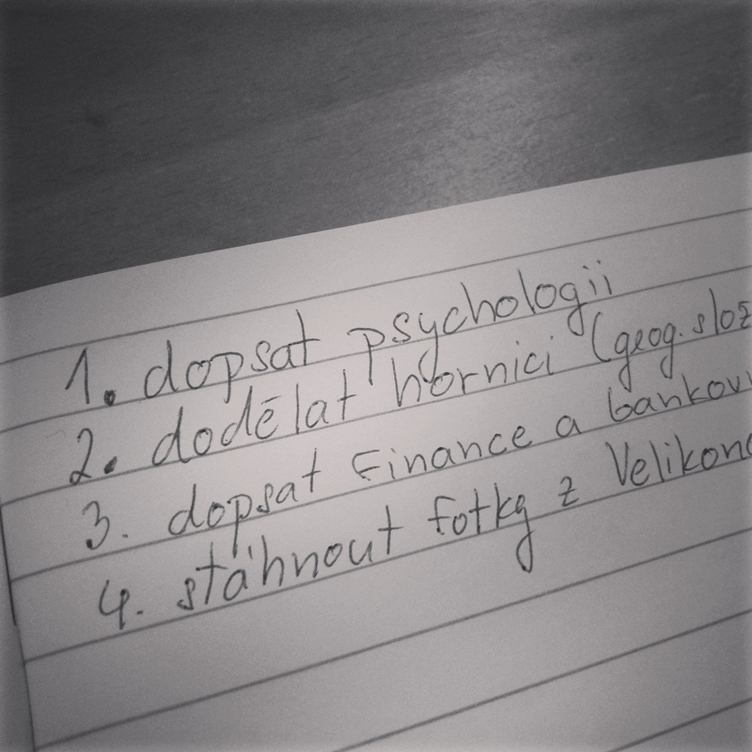 1. dopsat psychologii
2. dodělat hornici (geog. slož
3. dopsat Finance a bankov
4. stáhnout fotky z Velikono